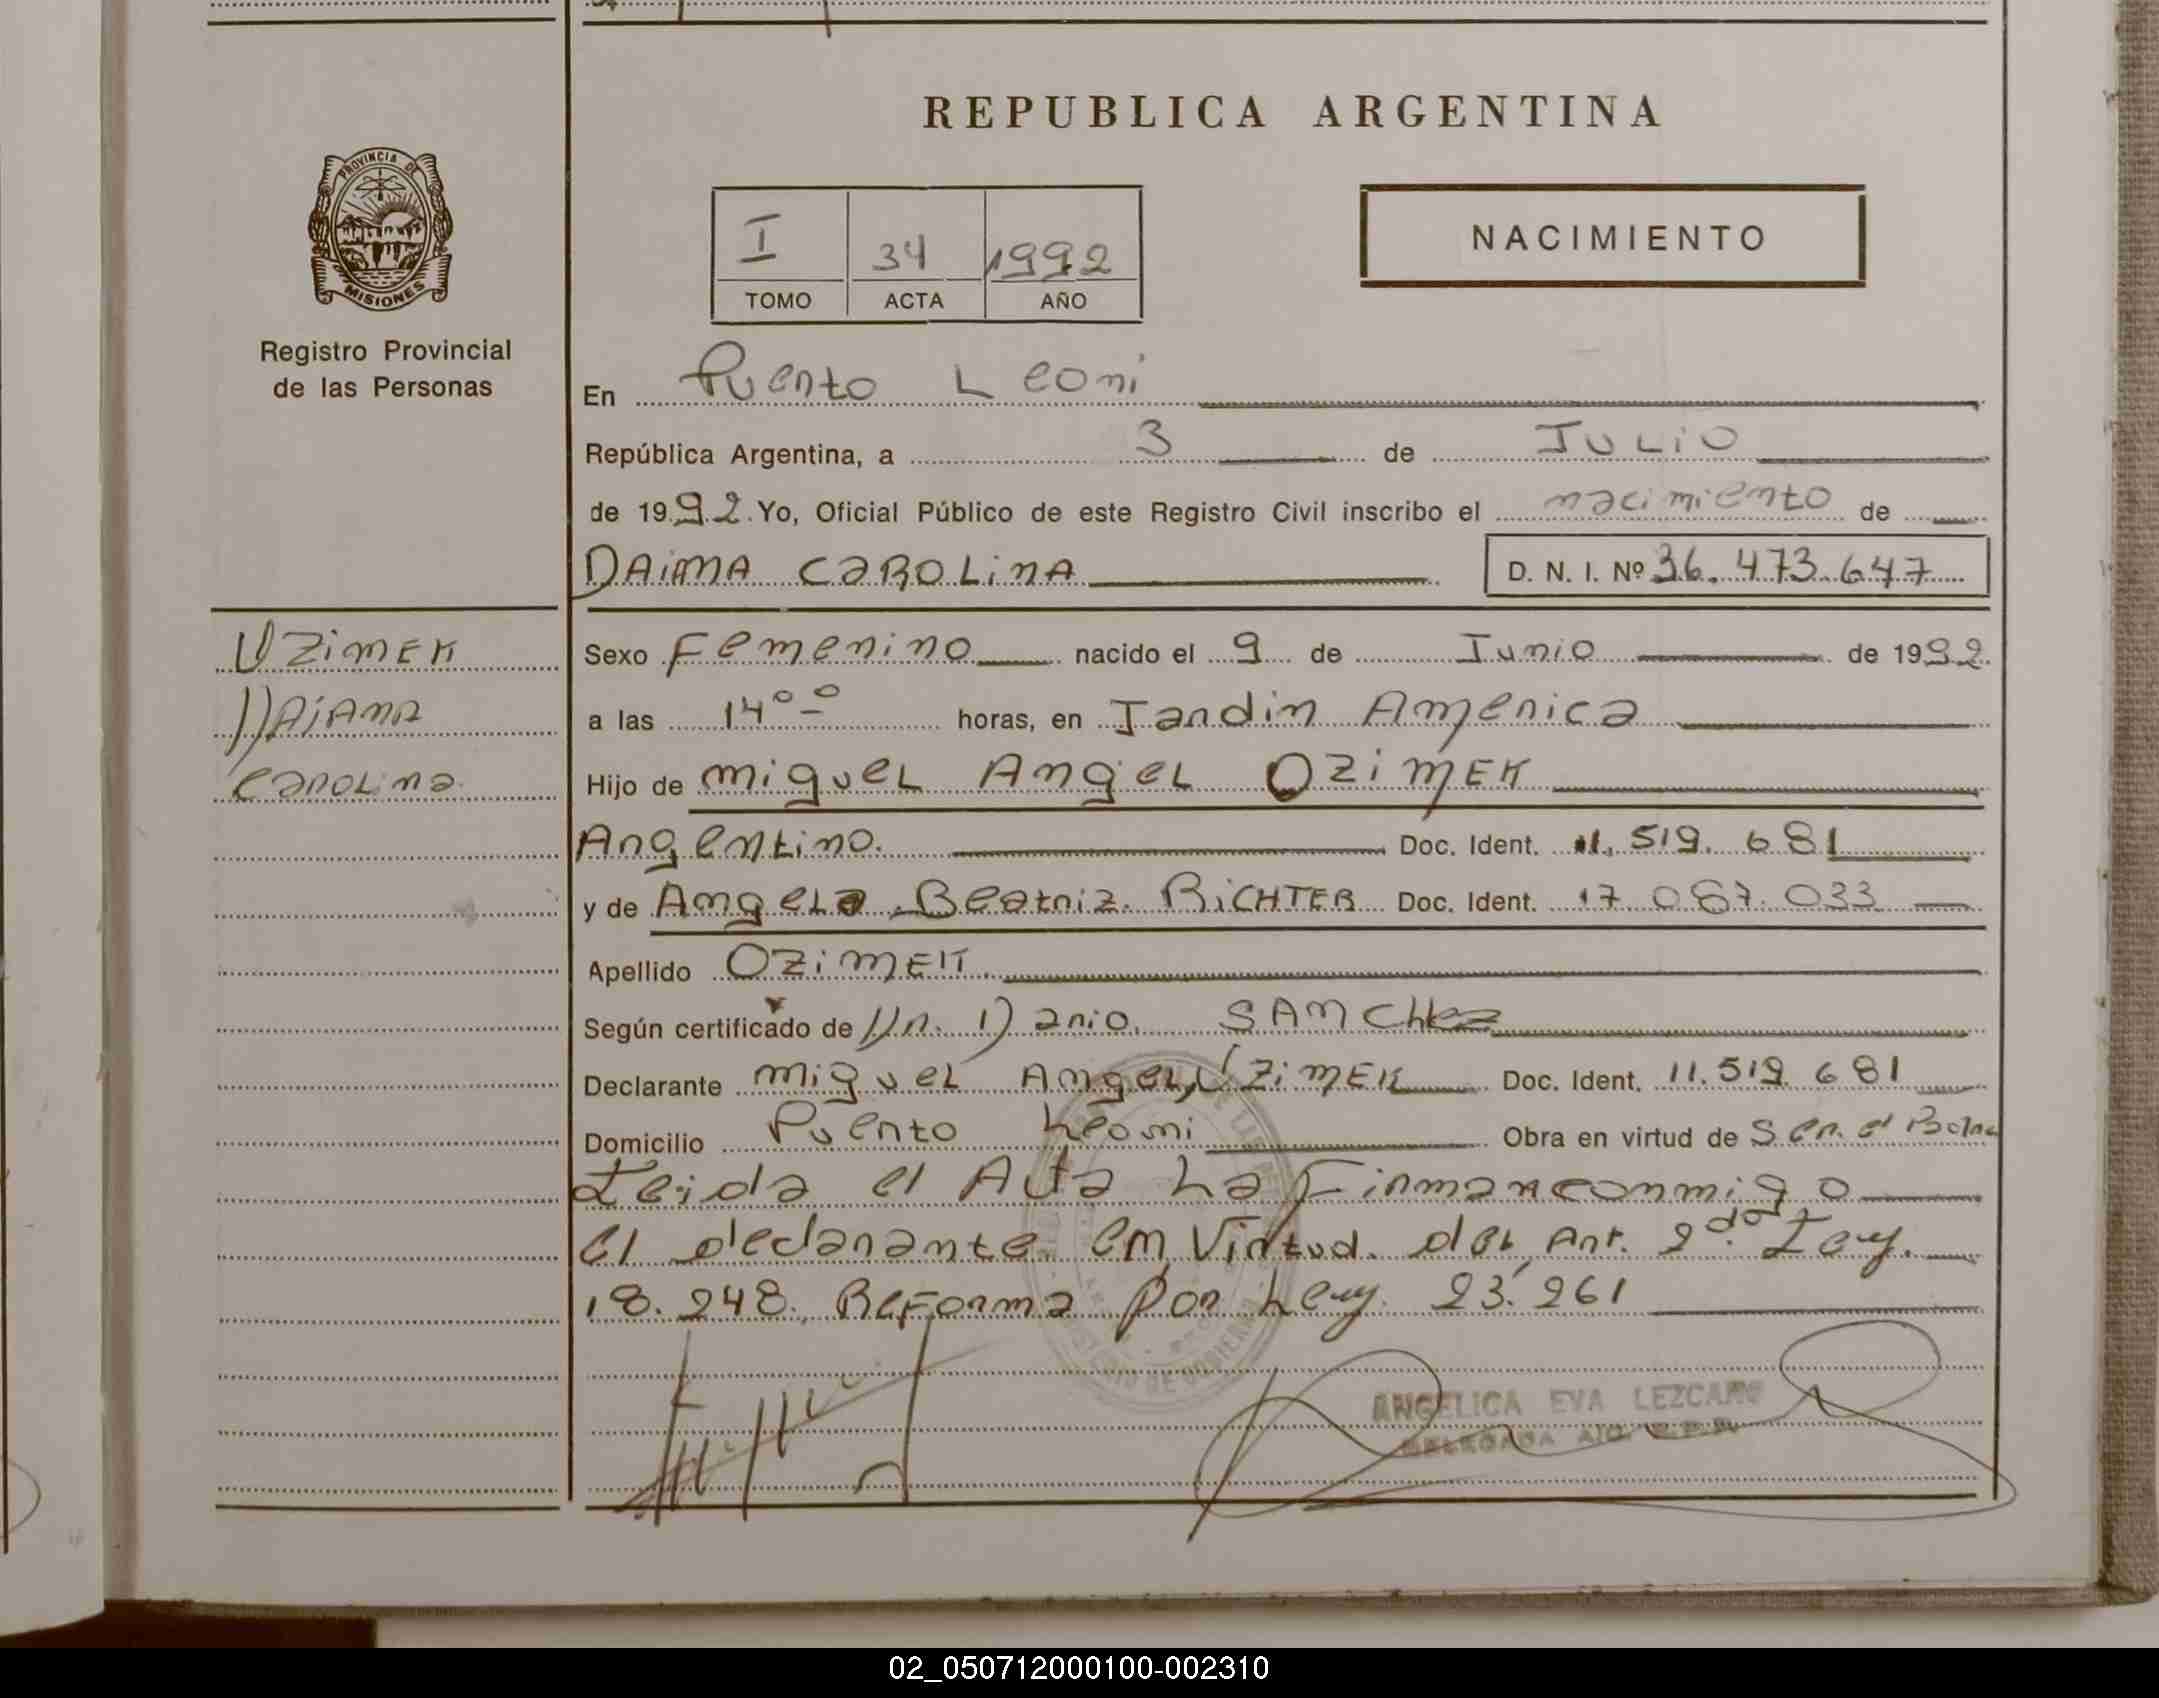 REPUBLICA ARGENTINA
PROVINCIA DE
MISIONES
Registro Provincial
de las Personas
I 34 1992
TOMO ACTA AÑO
NACIMIENTO
En Puerto Leoni
República Argentina, a 3 de Julio
de 1992. Yo, Oficial Público de este Registro Civil inscribo el nacimiento de
DAiANA CAROLiNA D. N. I. Nº 36.473.647
OZiMEK
DAiANA
CAROLiNA
Sexo Femenino nacido el 9 de Junio de 1992.
a las 14°° horas, en Jardin America
Hijo de Miguel Angel OZiMEK
Argentino. Doc. Ident. 11.519.681
y de Angela Beatriz RiCHTER Doc. Ident. 17.087.033
Apellido OZiMEK
Según certificado de Dr. Dario SANCHez
Declarante Miguel Angel OZiMEK Doc. Ident. 11.519.681
Domicilio Puerto Leoni Obra en virtud de Ser el
Leida el Acta La Firman conmigo
el declarante en Virtud del Art. 2do Ley.
18.248. Reforma Por Ley. 23.261
ANGELICA EVA LEZCANO
DELEGADA
02_050712000100-002310